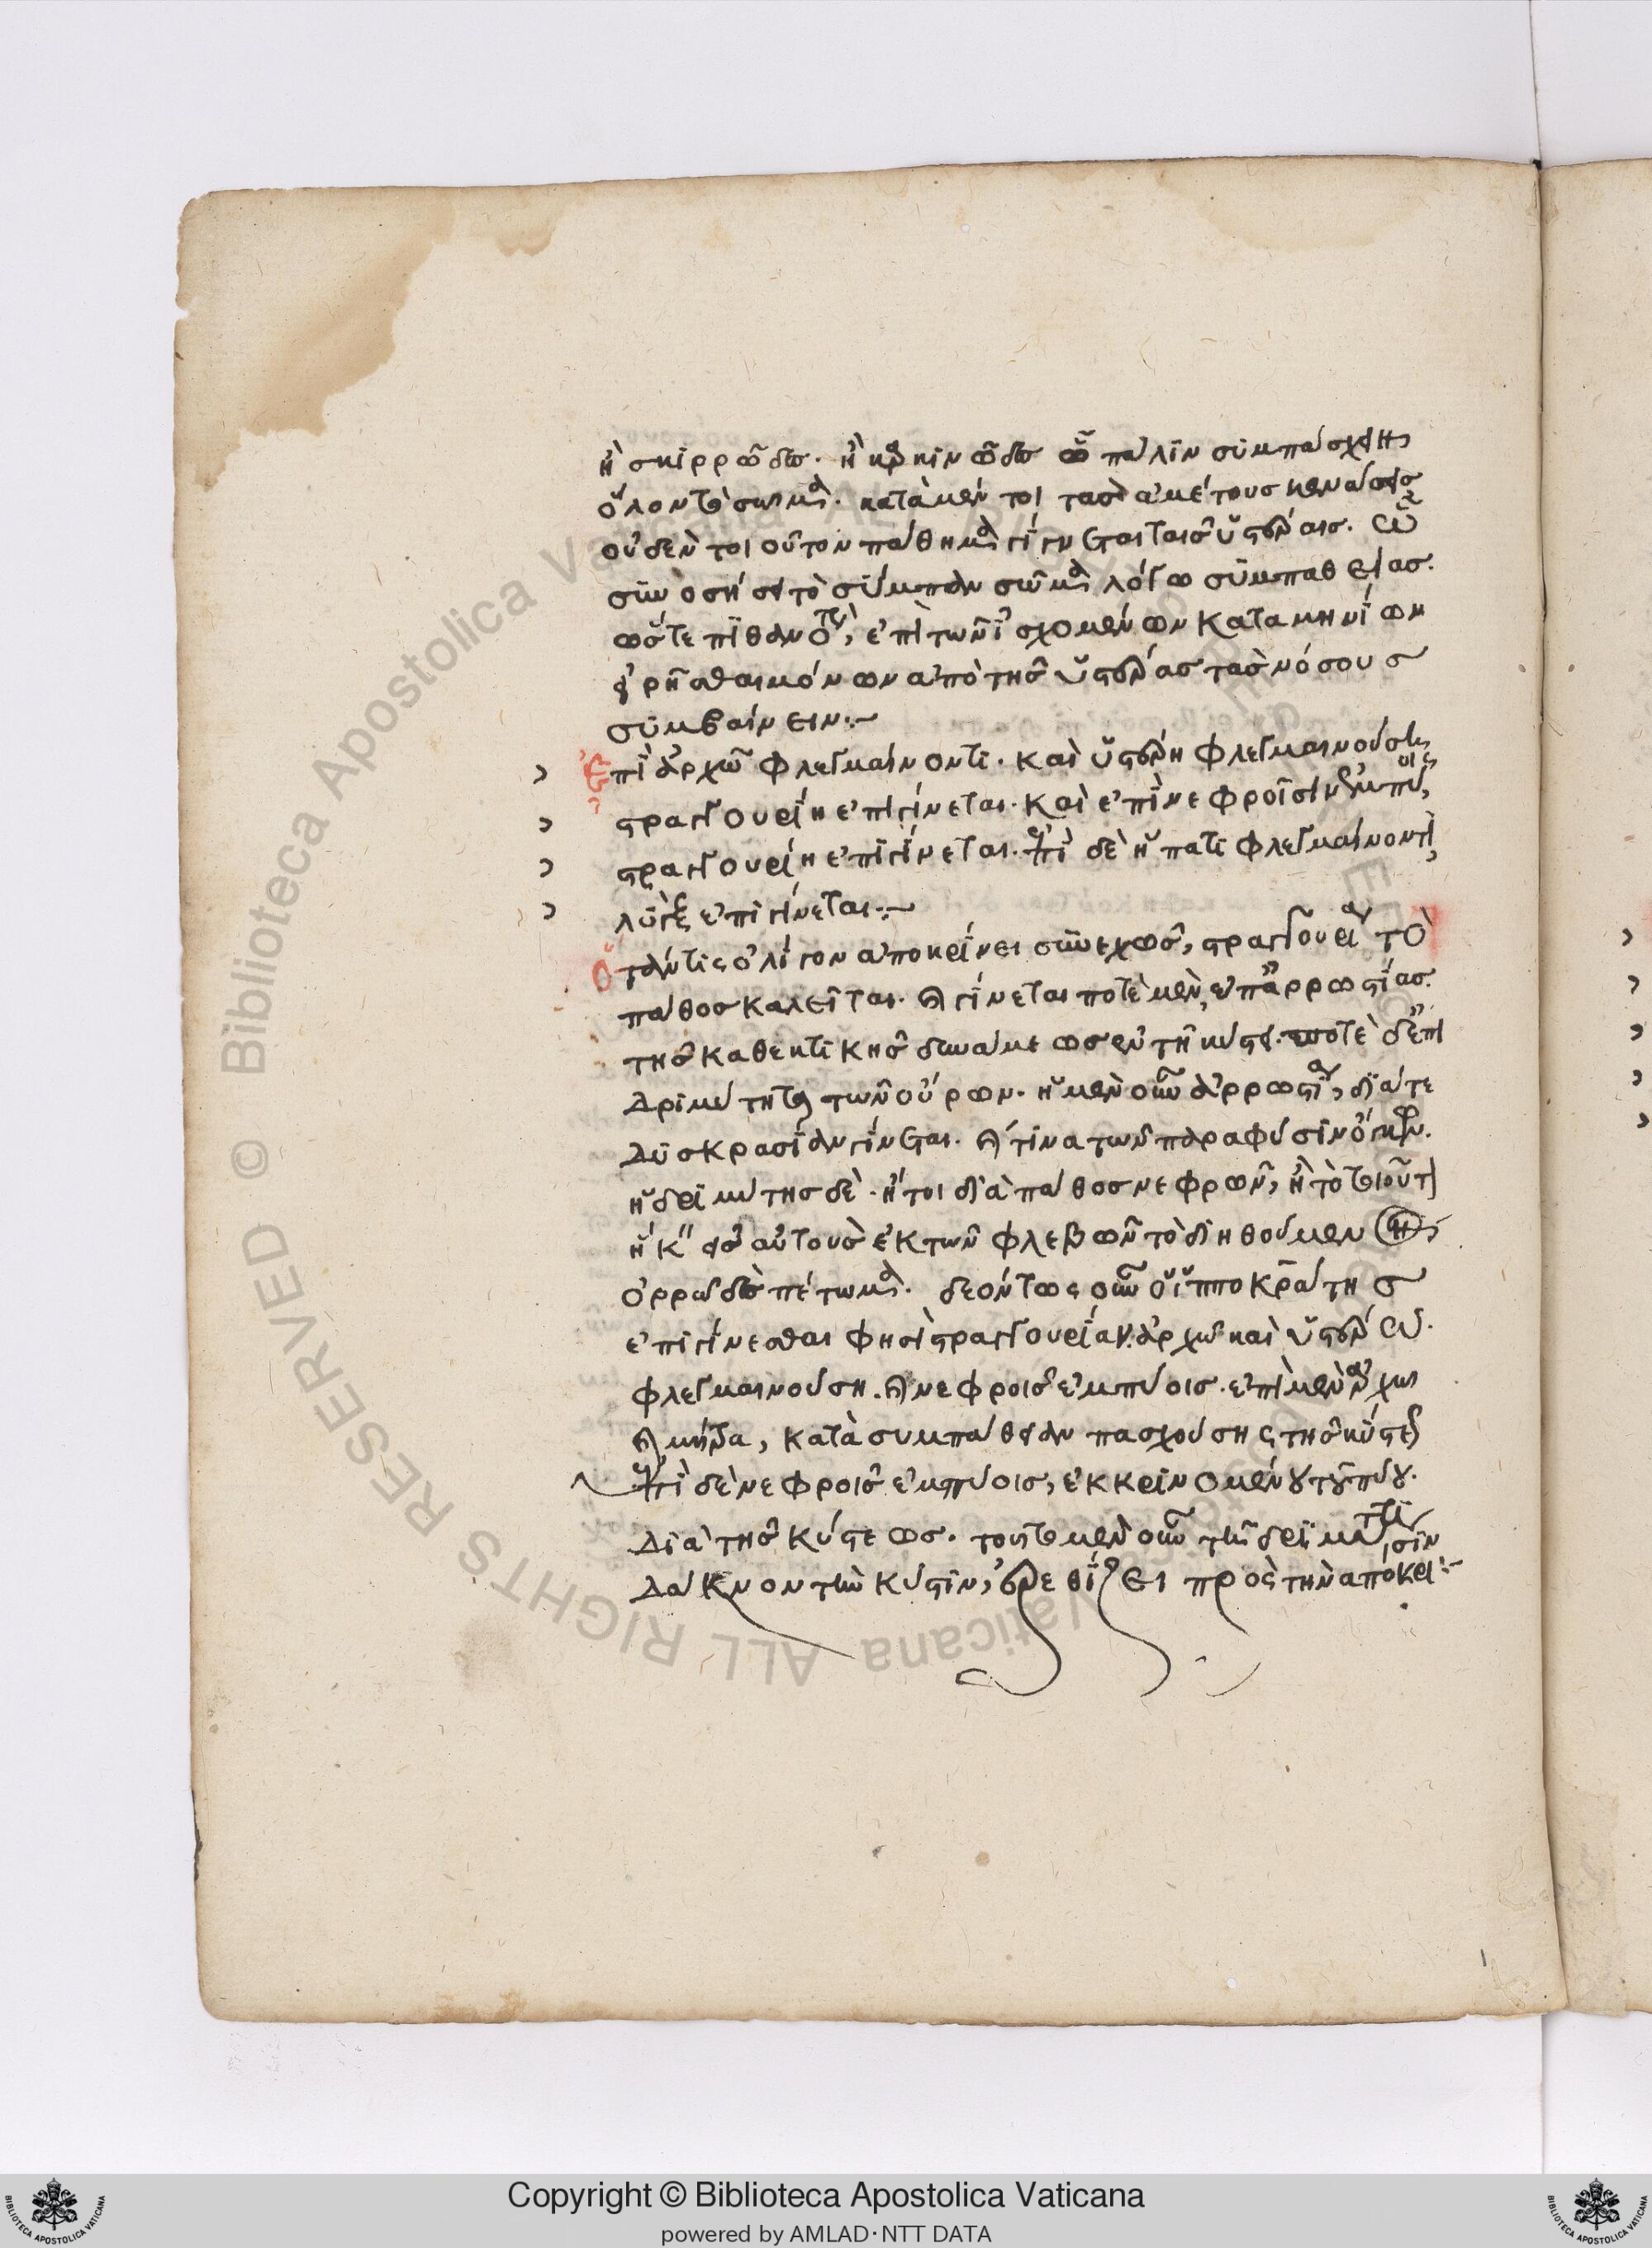 ἢ σκιρρώδεις. ἢ καρκινώδεις ὡς πάλιν συμπάσχειν
ὅλον τὸ σῶμα. κατὰ μέντοι τὰς ἀμέτρους κενώσεις
οὐδὲν τοιοῦτον πάθημα γίνεται ταῖς ὑστέραις. ὡς
συννοσῆσαι τὸ σύμπαν σῶμα λόγω συμπαθείας.
ὥστε πιθανὸν, ἐπὶ τῶν ἰσχομένων καταμηνίων
εἰρῆσθαι μόνων ἀπὸ τῆς ὑστέρας τὰς νόσους
συμβαίνειν:~
Ἐπὶ ἀρχῶ φλεγμαίνοντι. καὶ ὑστέρη φλεγμαινούση,
στραγγουρίη ἐπιγίνεται. καὶ ἐπὶ νεφροῖσιν ἐμπύοις,
στραγγουρίη ἐπιγίνεται. ἐπὶ δὲ ἥπατι φλεγμαίνοντι,
λὺγξ ἐπιγίνεται:~
Ὅταν τις ὀλίγον ἀποκρίνει συνεχῶς, στραγγουρία τὸ
πάθος καλεῖται. καὶ γίνεται ποτὲ μὲν, ἐπ' ἀρρωστίας
τῆς καθεκτικῆς δυνάμεως ἐν τῆ κύστει. ποτὲ δ' ἐπὶ
δριμύτητι τῶν οὔρων. ἡ μὲν οὖν ἀρρωστία, διά τε
δυσκρασίαν γίνεται. καί τινα τῶν παρὰ φύσιν ὄγκων.
ἡ δριμύτης δὲ. ἤτοι διὰ πάθος νεφρῶν, ἢ τὸ τοιοῦτον
εἰς αὐτοὺς ἐκ τῶν φλεβῶν τὸ διηθούμενον
ὀρρῶδες περίττωμα. δεόντως οὖν ὁ ἱπποκράτης
ἐπιγίνεσθαι φησὶ στραγγουρίαν. ἀρχῶ καὶ ὑστέρα.
φλεγμαινούση. καὶ νεφροῖς ἐμπύοις. ἐπὶ μὲν ἀρχῶ
καὶ μήτρα, κατὰ συμπάθειαν πασχούσης τῆς κύστεως
ἐπὶ δὲ νεφροῖς ἐμπύοις, ἐκκρινομένου τοῦ πύου.
διὰ τῆς κύστεως. τοῦτο μὲν οὖν τῆ δριμύτητι
δάκνον τὴν κύστιν, ἐρεθίζει πρὸς τὴν ἀπόκρισιν:~